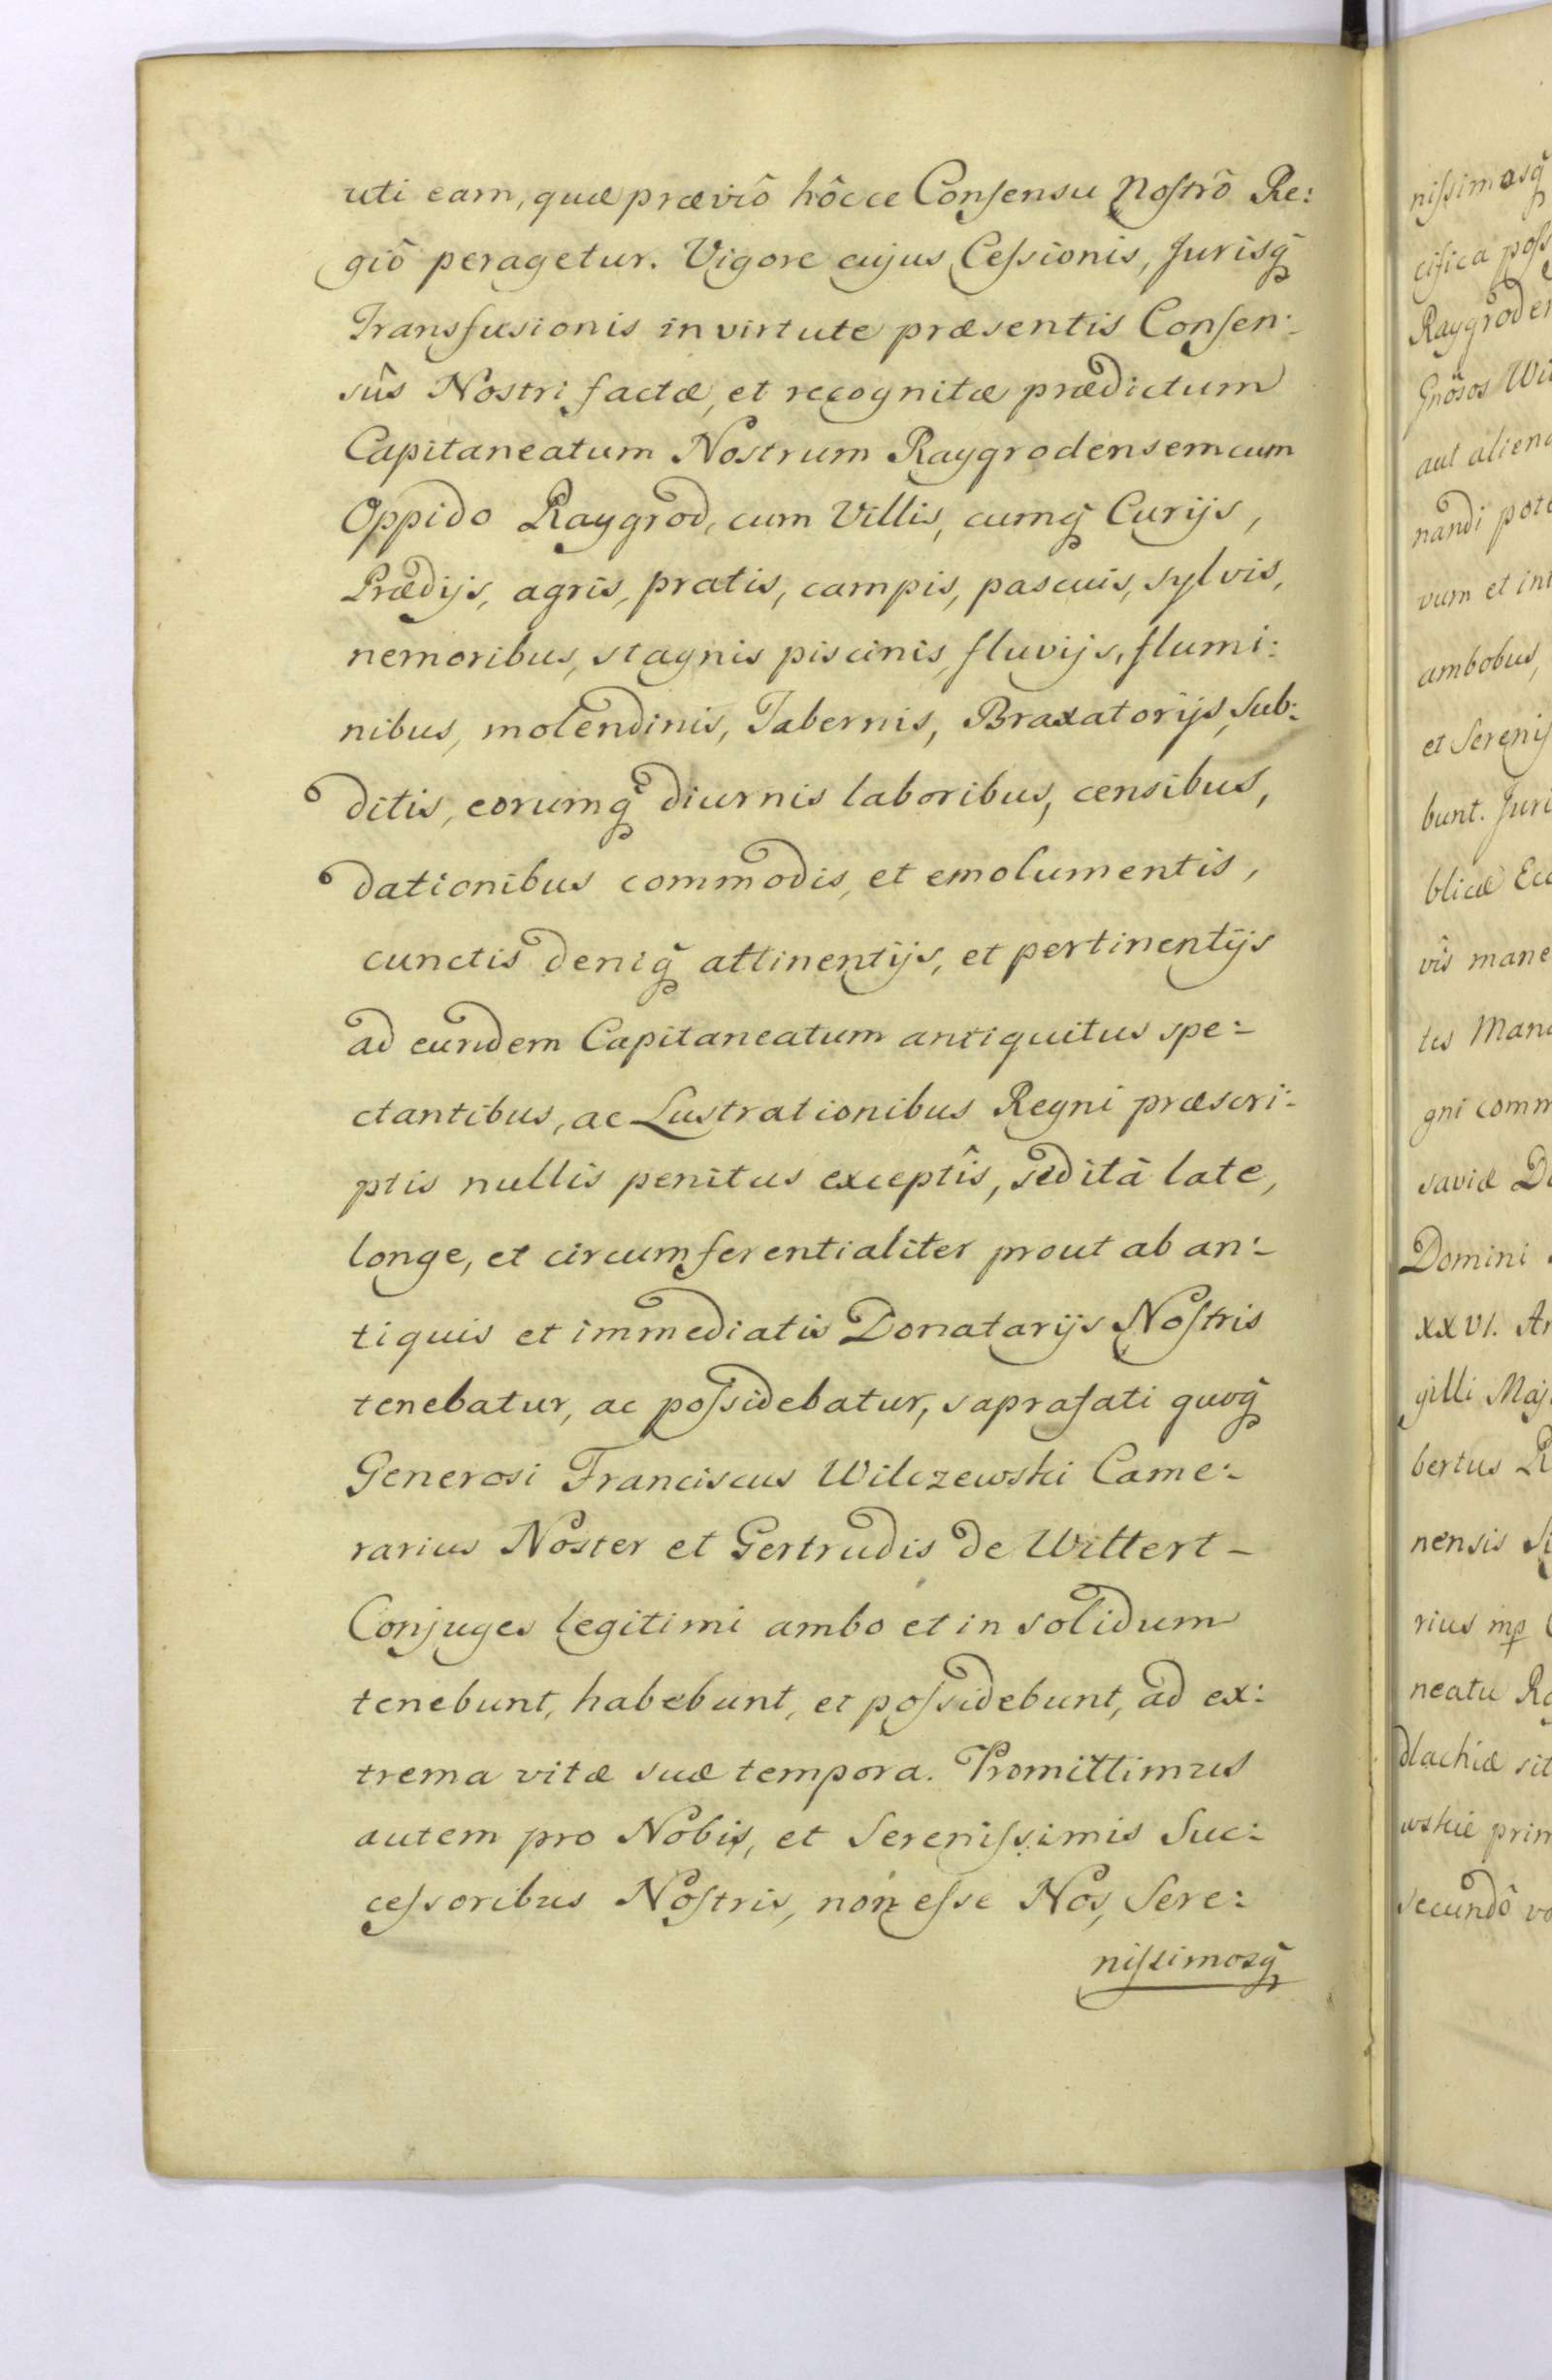 uti eam, quæ præviô hôcce Consensu Nostrô Re:
giô peragetur. Vigore cujus Cessionis, Jurisq̃
Transfusionis in virtute præsentis Consen:
sûs Nostri factæ, et recognitæ prædictum
Capitaneatum Nostrum Raygrodensem cum
Oppido Raygrod, cum Villis, cumq̃ Curijs,
Prædijs, agris, pratis, campis, pascuis, sylvis,
nemoribus, stagnis piscinis, fluvijs, flumi:
nibus, molendinis, Tabernis, Braxatorijs, Sub:
ditis, eorumq̃ diurnis laboribus, censibus,
dationibus commodis, et emolumentis,
cunctis deniq̃ attinentijs, et pertinentijs
ad eundem Capitaneatum antiquitus spe:
ctantibus, ac Lustrationibus Regni præscri:
ptis nullis penitus exceptîs, sed ità late,
longe, et circumferentialiter prout ab an:
tiquis et immediatis Donatarijs Nostris
tenebatur, ac possidebatur, saprafati quoq̃
Generosi Franciscus Wilczewski Came:
rarius Noster et Gertrudis de Wittert
Conjuges legitimi ambo et in solidum
tenebunt, habebunt, et possidebunt, ad ex:
trema vitæ suæ tempora. Promittimus
autem pro Nobis, et Serenissimis Suc:
cessoribus Nostris, non esse Nos, Sere:
nissimosq̃
nissimosq̃
cifica poss
Raygroden
Gnõsos Wil
aut aliena
nandi pote
vum et int
ambobus,
et Serenis
bunt. Juri
blicæ Ecc
vîs mane
tes Manu
gni comm
saviæ D
Domini
XXVI. An
gilli Maj
bertus R
nensis
rius mp
neatu Ra
dlachiæ sit
wskie prim
secundô vo